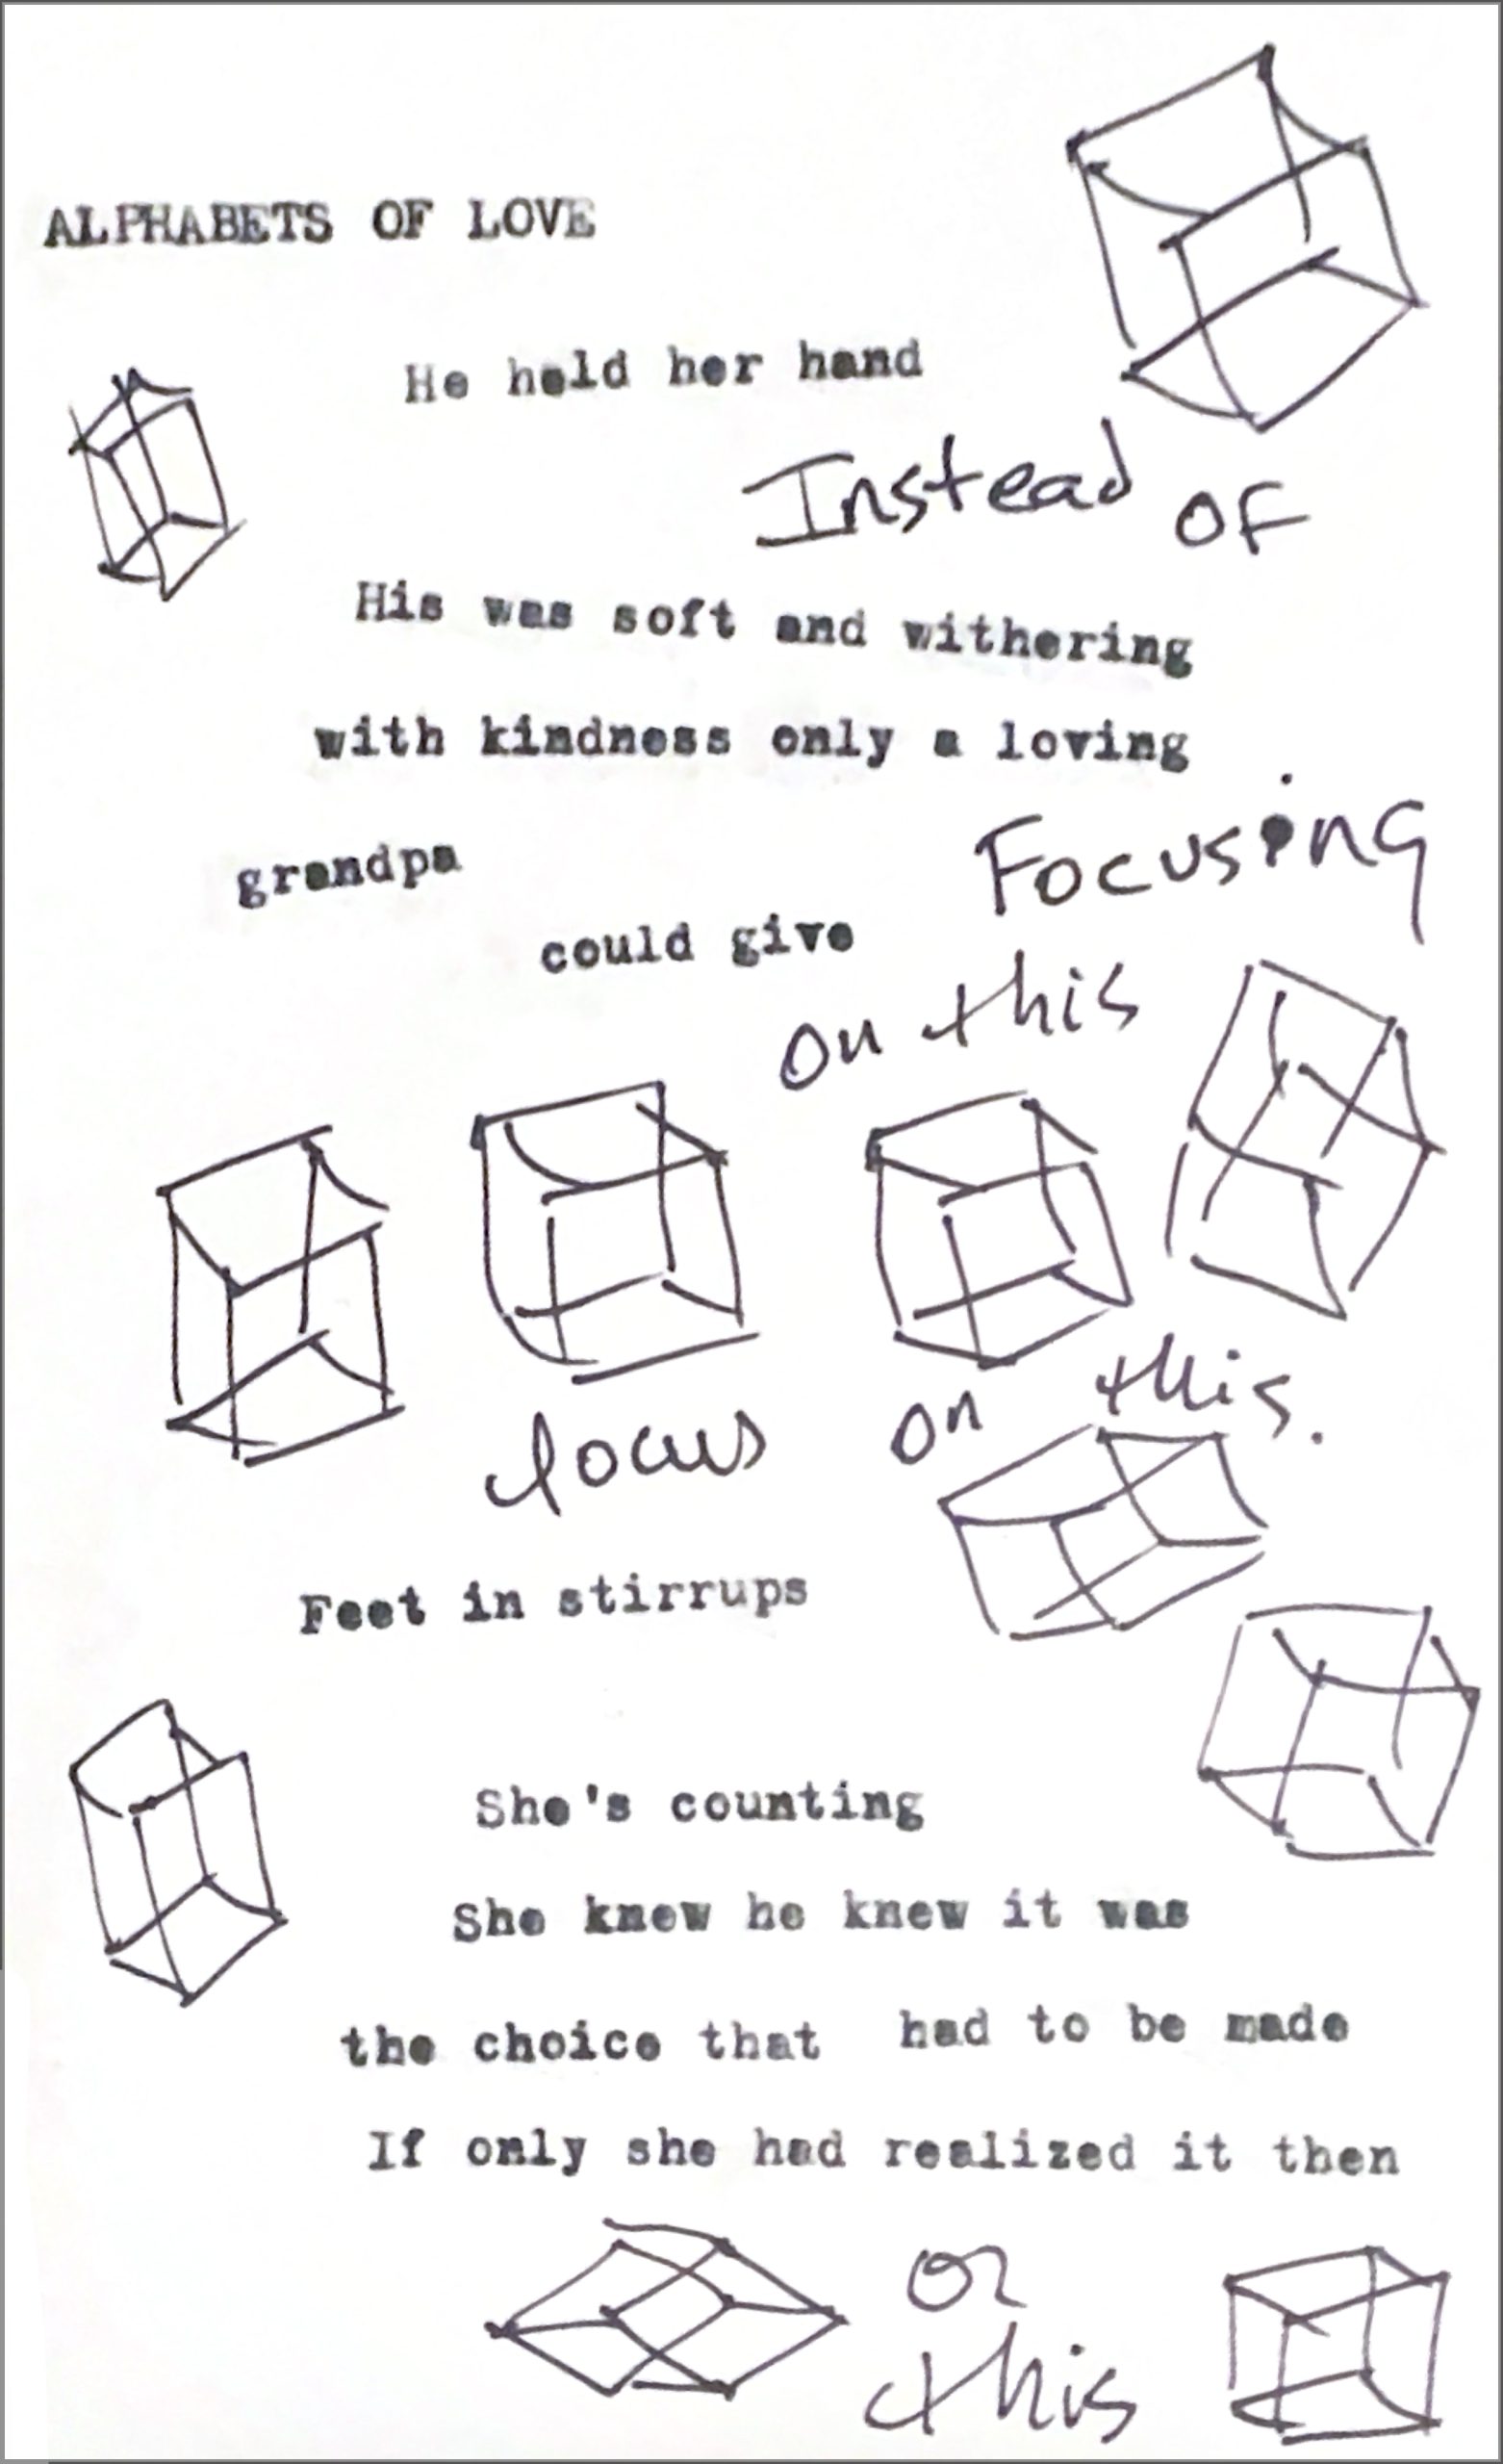 ALPHABETS OF LOVE
He held her hand
Instead of
His was soft and withering
with kindness only a loving
grandpa
could give
Focusing
on this
focus on this.
Feet in stirrups
She's counting
She knew he knew it was
the choice that had to be made
If only she had realized it then
or
this